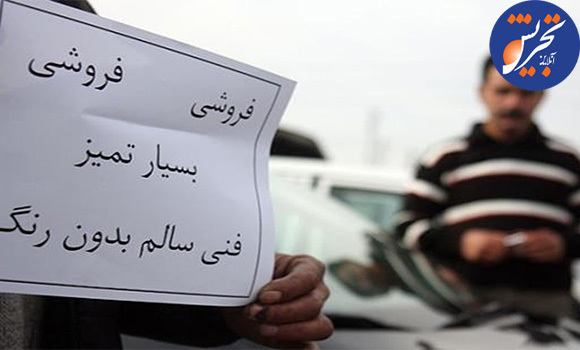 فروشی فروشی
بسیار تمیز
فنی سالم بدون رنگ
تجریش